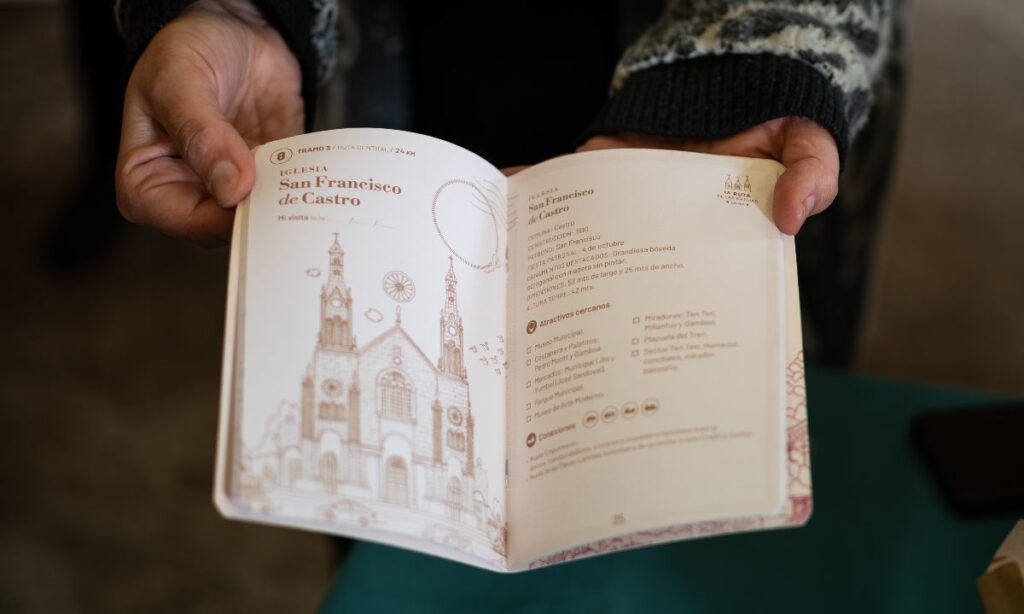 8 TRAMO 3 / RUTA CENTRAL / 24 KM
IGLESIA
San Francisco
de Castro
Mi visita
IGLESIA
San Francisco
de Castro
LA RUTA
DE LAS IGLESIAS
COMUNA: Castro
CONSTRUCCIÓN: 1910
PATRONO: San Francisco
FIESTA PATRONAL: 4 de octubre
ORNAMENTOS DESTACADOS: Grandiosa bóveda
octogonal con madera sin pintar.
DIMENSIONES: 52 mts de largo y 26 mts de ancho.
ALTURA TORRE: 42 mts.
Atractivos cercanos
Museo Municipal.
Costanera y Palafitos:
Pedro Montt y Gamboa.
Mercados: Municipal Lillo y
Yumbel
Parque Municipal.
Museo de Arte Moderno.
Miradores: Ten Ten,
Millantuy y Gamboa.
Plazuela del Tren.
Sector Ten Ten: Humedal,
conchales, mirador,
balneario.
Conexiones